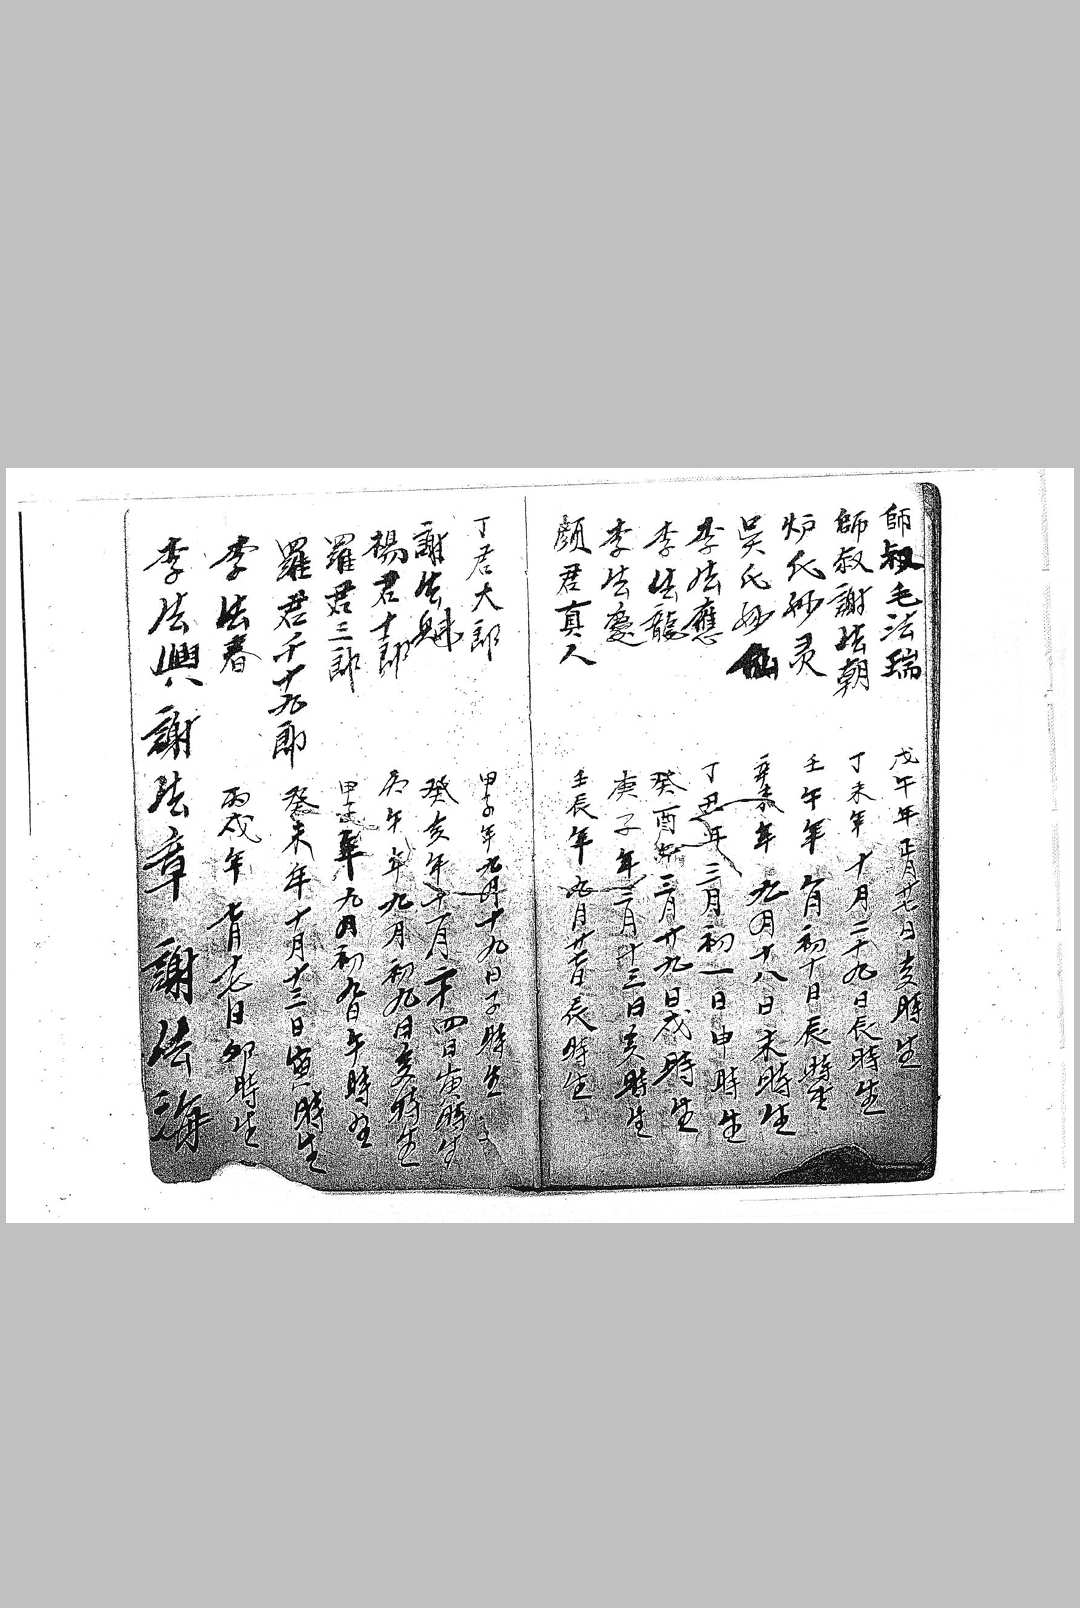 師叔毛法瑞 戊午年正月廿七日亥時生
師叔謝法朝 丁未年十月二十九日辰時生
炉氏妙灵 壬午年 月初十日辰時生
吴氏妙仙 辛未年九月十八日未時生
李法應 丁丑年三月初一日申時生
李法龍 癸酉年三月廿九日戌時生
李法慶 庚子年二月十三日亥時生
顏君真人 壬辰年九月廿七日辰時生
丁君大郎 甲子年九月十九日子時生
謝法魁 癸亥年十一月二十四日寅時生
楊君十郎 丙午年九月初九日亥時生
羅君三郎 甲 年九月初九日午時生
羅君千十九郎 癸未年十月十三日寅時生
李法春 丙戌年七月十七日卯時生
李法興 謝法章 謝法海